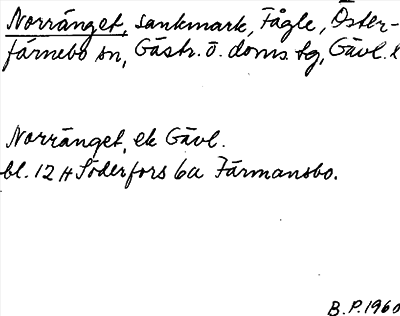 Norränget, sankmark, Fågle, Öster-
färnebo sn, Gästr. ö. doms. tg, Gävl. l
Norränget, ek Gävl.
bl. 12 H Söderfors 6a Färmansbo.
B.P. 1960